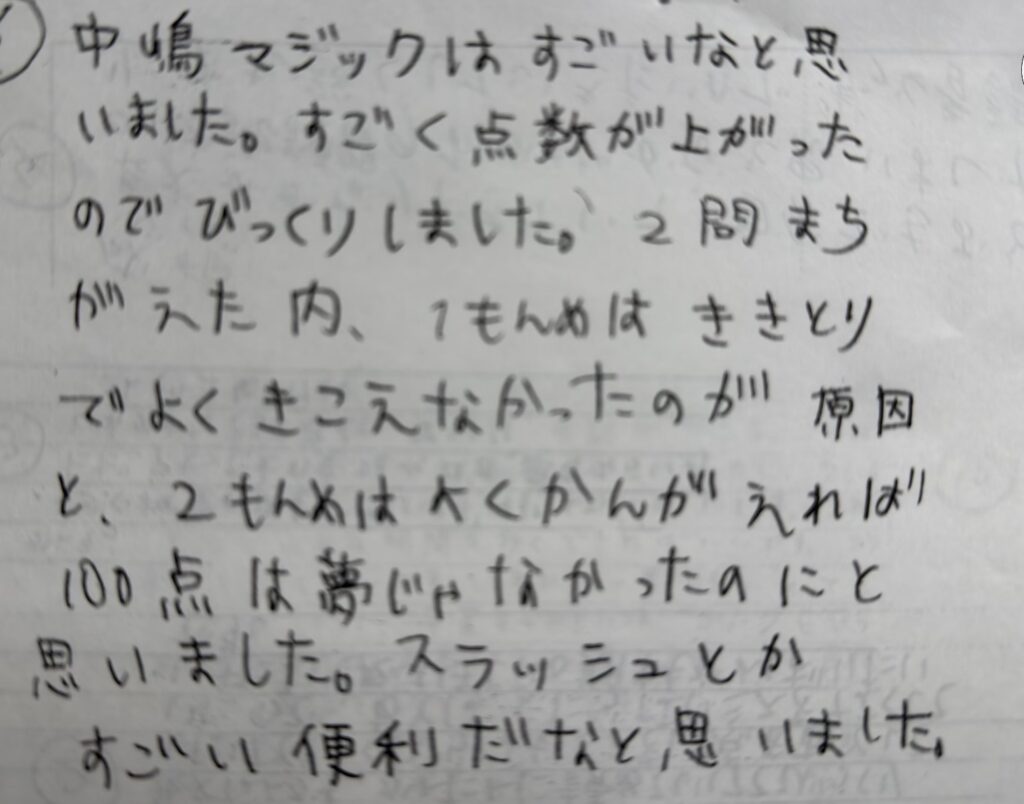 中嶋マジックはすごいなと思
いました。すごく点数が上がった
のでびっくりしました。2問まち
がえた内、1もんめはききとり
でよくきこえなかったのが原因
と、2もんめはよくかんがえれば
100点は夢じゃなかったのにと
思いました。スラッシュとか
すごい便利だなと思いました。